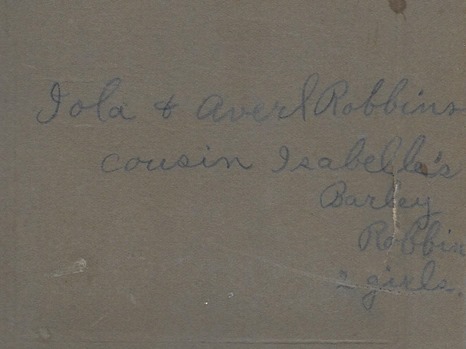 Iola & Averl Robbins
cousin Isabelle's
Barley
Robbin
2 girls.